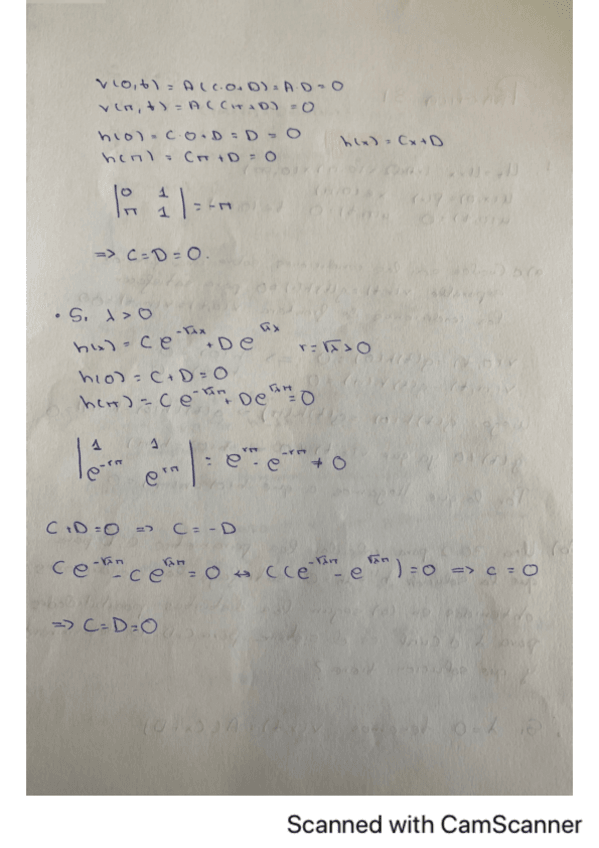 v(0,t) = A(C·0+D) = A·D = 0
v(π,t) = A(Cπ+D) = 0
h(0) = C·0+D = D = 0 h(x) = Cx+D
h(π) = Cπ+D = 0
|0 1|
|π 1| = -π
=> C=D=0.
• Si λ>0
h(x) = C e^{-√λx} + D e^{√λx} r=√λ>0
h(0) = C+D=0
h(π) = C e^{-√λπ} + D e^{√λπ} = 0
|1 1|
|e^{-rπ} e^{rπ}| = e^{rπ} - e^{-rπ} ≠ 0
C+D=0 => C=-D
C e^{-√λπ} - C e^{√λπ} = 0 ↔ C(e^{-√λπ} - e^{√λπ}) = 0 => C = 0
=> C=D=0
Scanned with CamScanner